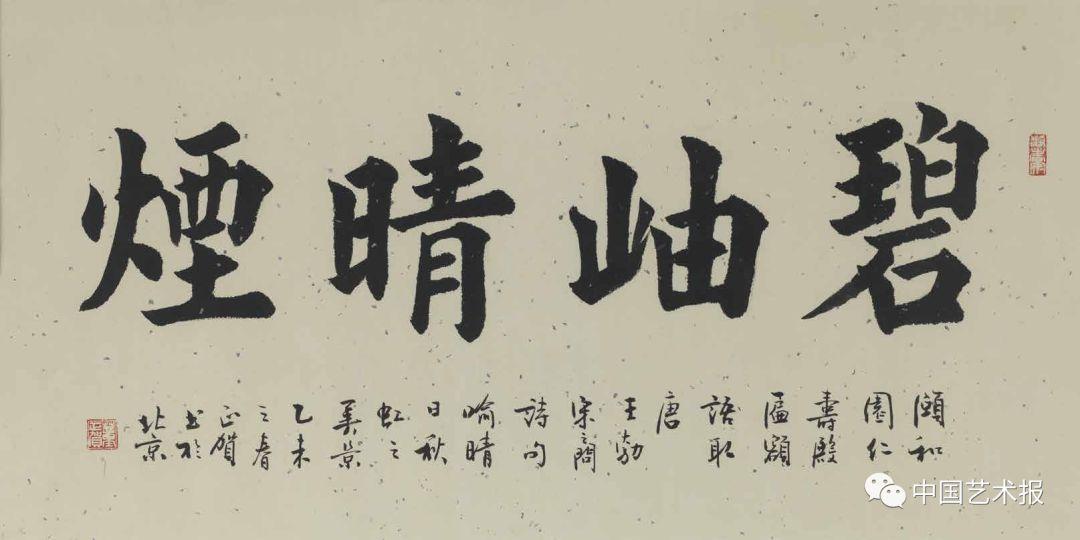 碧岫晴煙
頤和
園仁
壽殿
匾額
語取
唐
王勃
宋之問
詩句
喻晴
日秋
虹之
美景
乙未
之春
正贺
书於
北京
中国艺术报